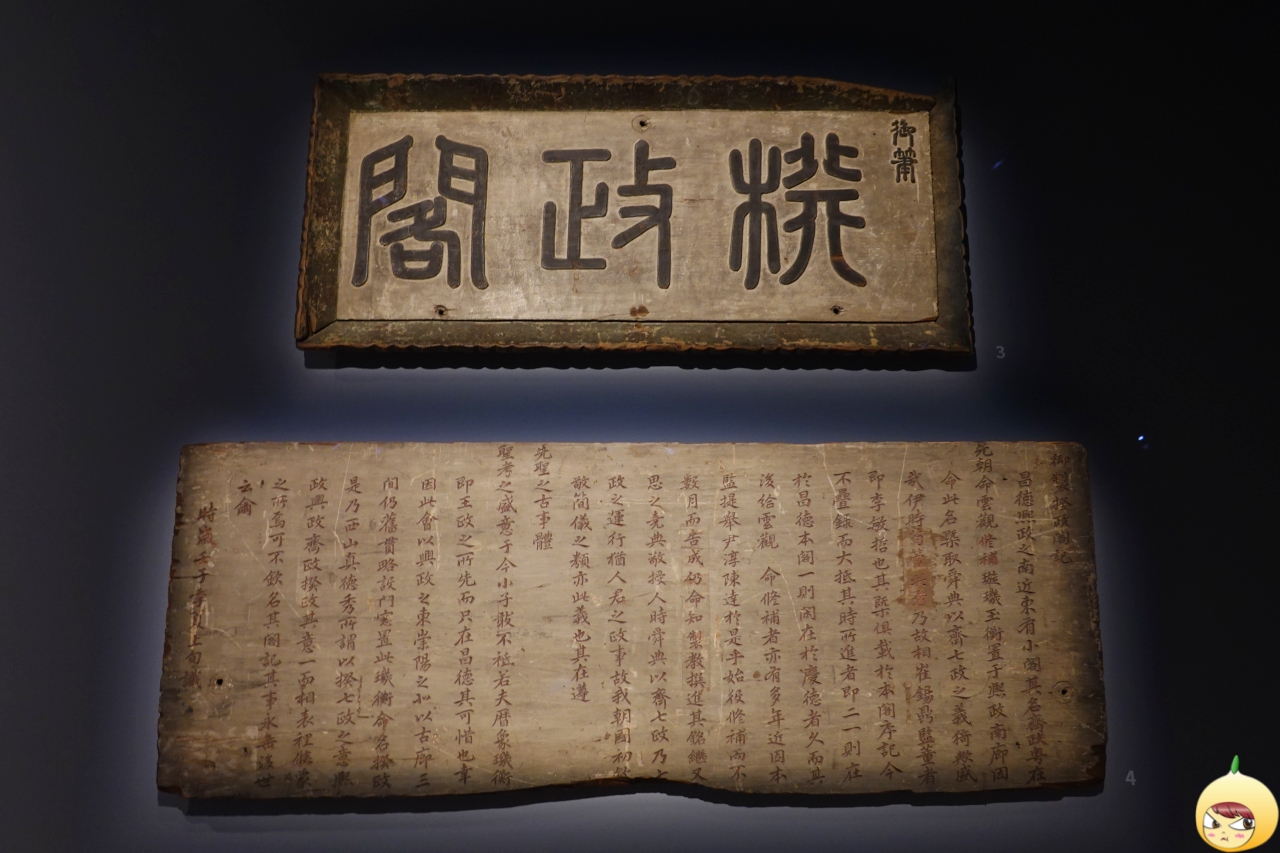 御筆
揆政閣
御製揆政閣記
昌德熙政之南近東有小閣其名齊政粤在
先朝命雲觀修補璇璣玉衡置于熙政南廊因
命此名槩取舜典以齊七政之義猗歟盛
哉伊時乃故相崔錫鼎監董者
即李敏哲也其槩俱載於本閣序記今
不疊錄而大抵其時所進者即二一則在
於昌德本閣一則閣在於慶德者久而其
後給雲觀 命修補者亦有多年近因本
監提舉尹淳陳達於是乎始役修補而不
數月而告成仍命知製教撰進其銘繼又
思之堯典敬授人時舜典以齊七政乃七
政之運行猶人君之政事故我朝國初欽
敬簡儀之類亦此義也其在遵
先聖之古事體
聖考之盛意于今小子敢不祗若夫曆象璣衡
即王政之所先而只在昌德其可惜也聿
因此會以興政之東崇陽之北以古廊三
間仍舊貫略設門窓置此璣衡命名揆政
是乃西山真德秀所謂以揆七政之意熙
政興政齊政揆政其意一而相表裡儀象
之所焉可不欽名其閣記其事永垂後世
云爾
時歲壬子月上旬識
3
4